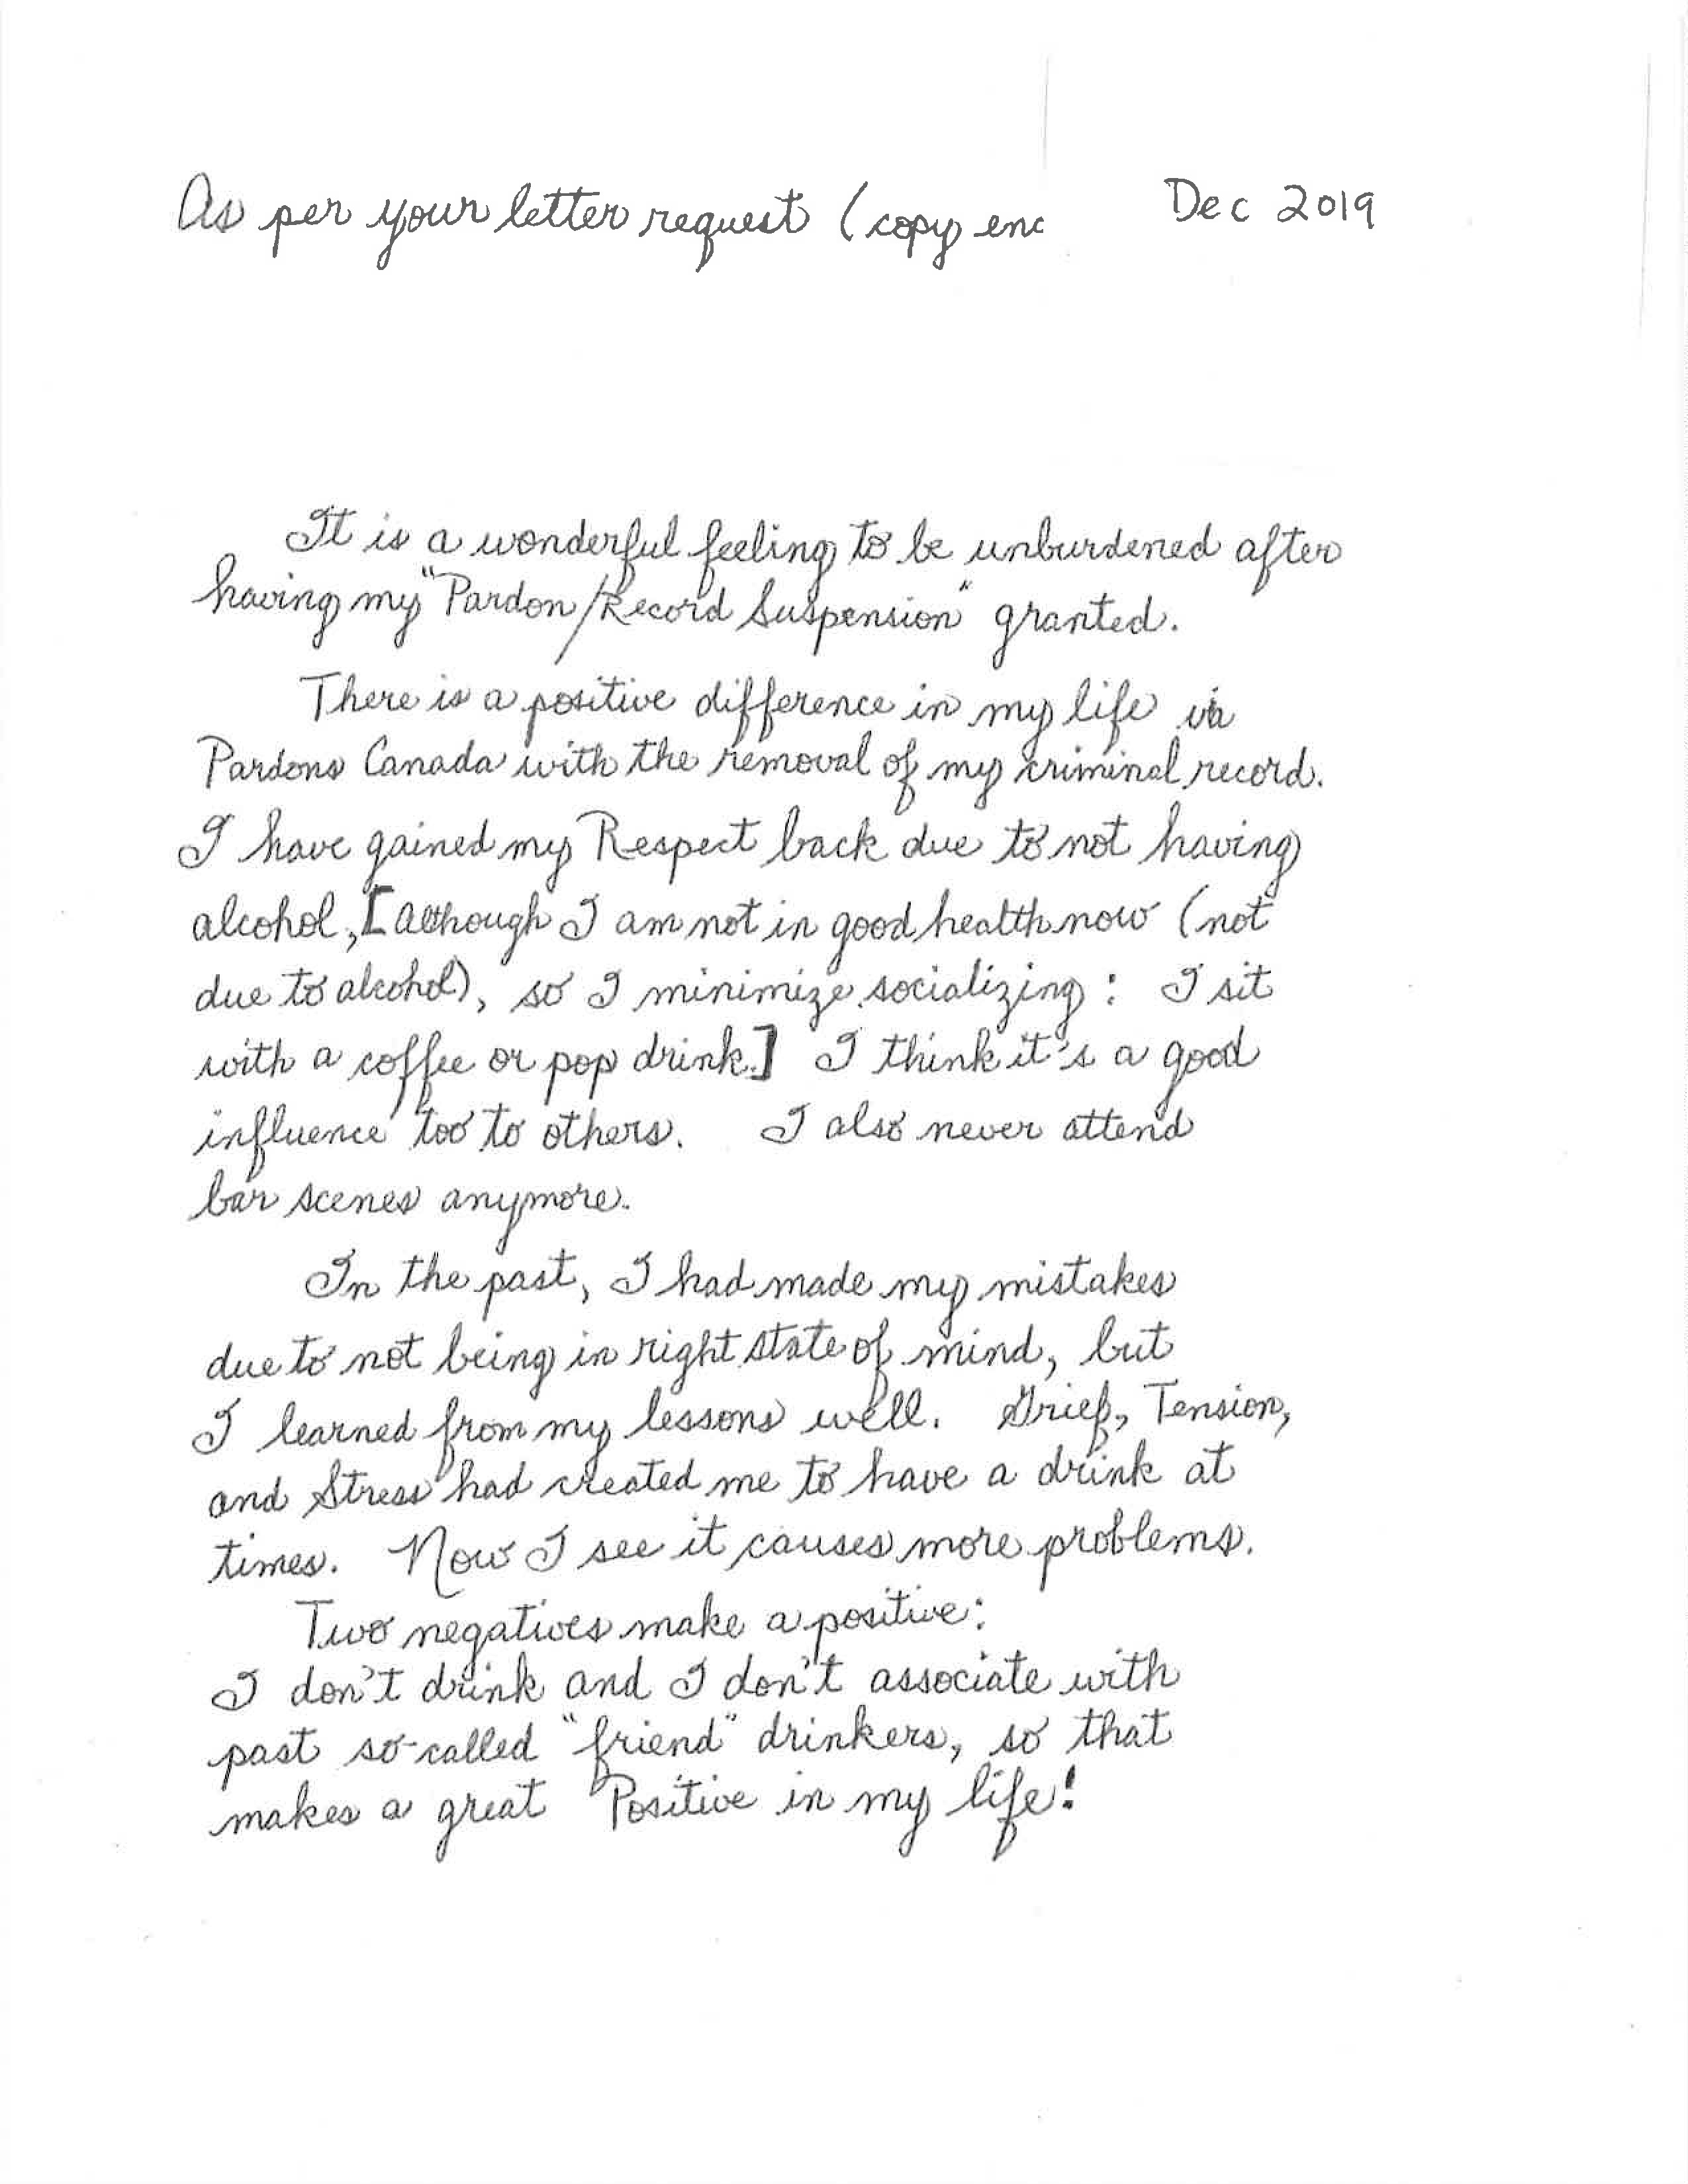 As per your letter request (copy enc
Dec 2019
It is a wonderful feeling to be unburdened after
having my "Pardon/Record Suspension" granted.
There is a positive difference in my life via
Pardons Canada with the removal of my criminal record.
I have gained my Respect back due to not having
alcohol, [although I am not in good health now (not
due to alcohol), so I minimize socializing: I sit
with a coffee or pop drink.] I think it's a good
influence too to others. I also never attend
bar scenes anymore.
In the past, I had made my mistakes
due to not being in right state of mind, but
I learned from my lessons well. Grief, Tension,
and Stress had created me to have a drink at
times. Now I see it causes more problems.
Two negatives make a positive:
I don't drink and I don't associate with
past so-called "friend" drinkers, so that
makes a great Positive in my life!